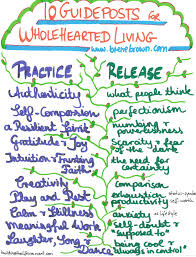 10 GUIDEPOSTS for
WHOLEHEARTED LIVING
www.brenebrown.com
PRACTICE RELEASE
Authenticity what people think
Self-Compassion perfectionism
a Resilient Spirit numbing + powerlessness
Gratitude + Joy scarcity + fear of the dark
Intuition + Trusting Faith the need for certainty
Creativity comparison
Play and Rest exhaustion status-symbol productivity self-worth
Calm + Stillness anxiety as lifestyle
Meaningful Work self-doubt + supposed to
Laughter, Song, + Dance being cool + always in control